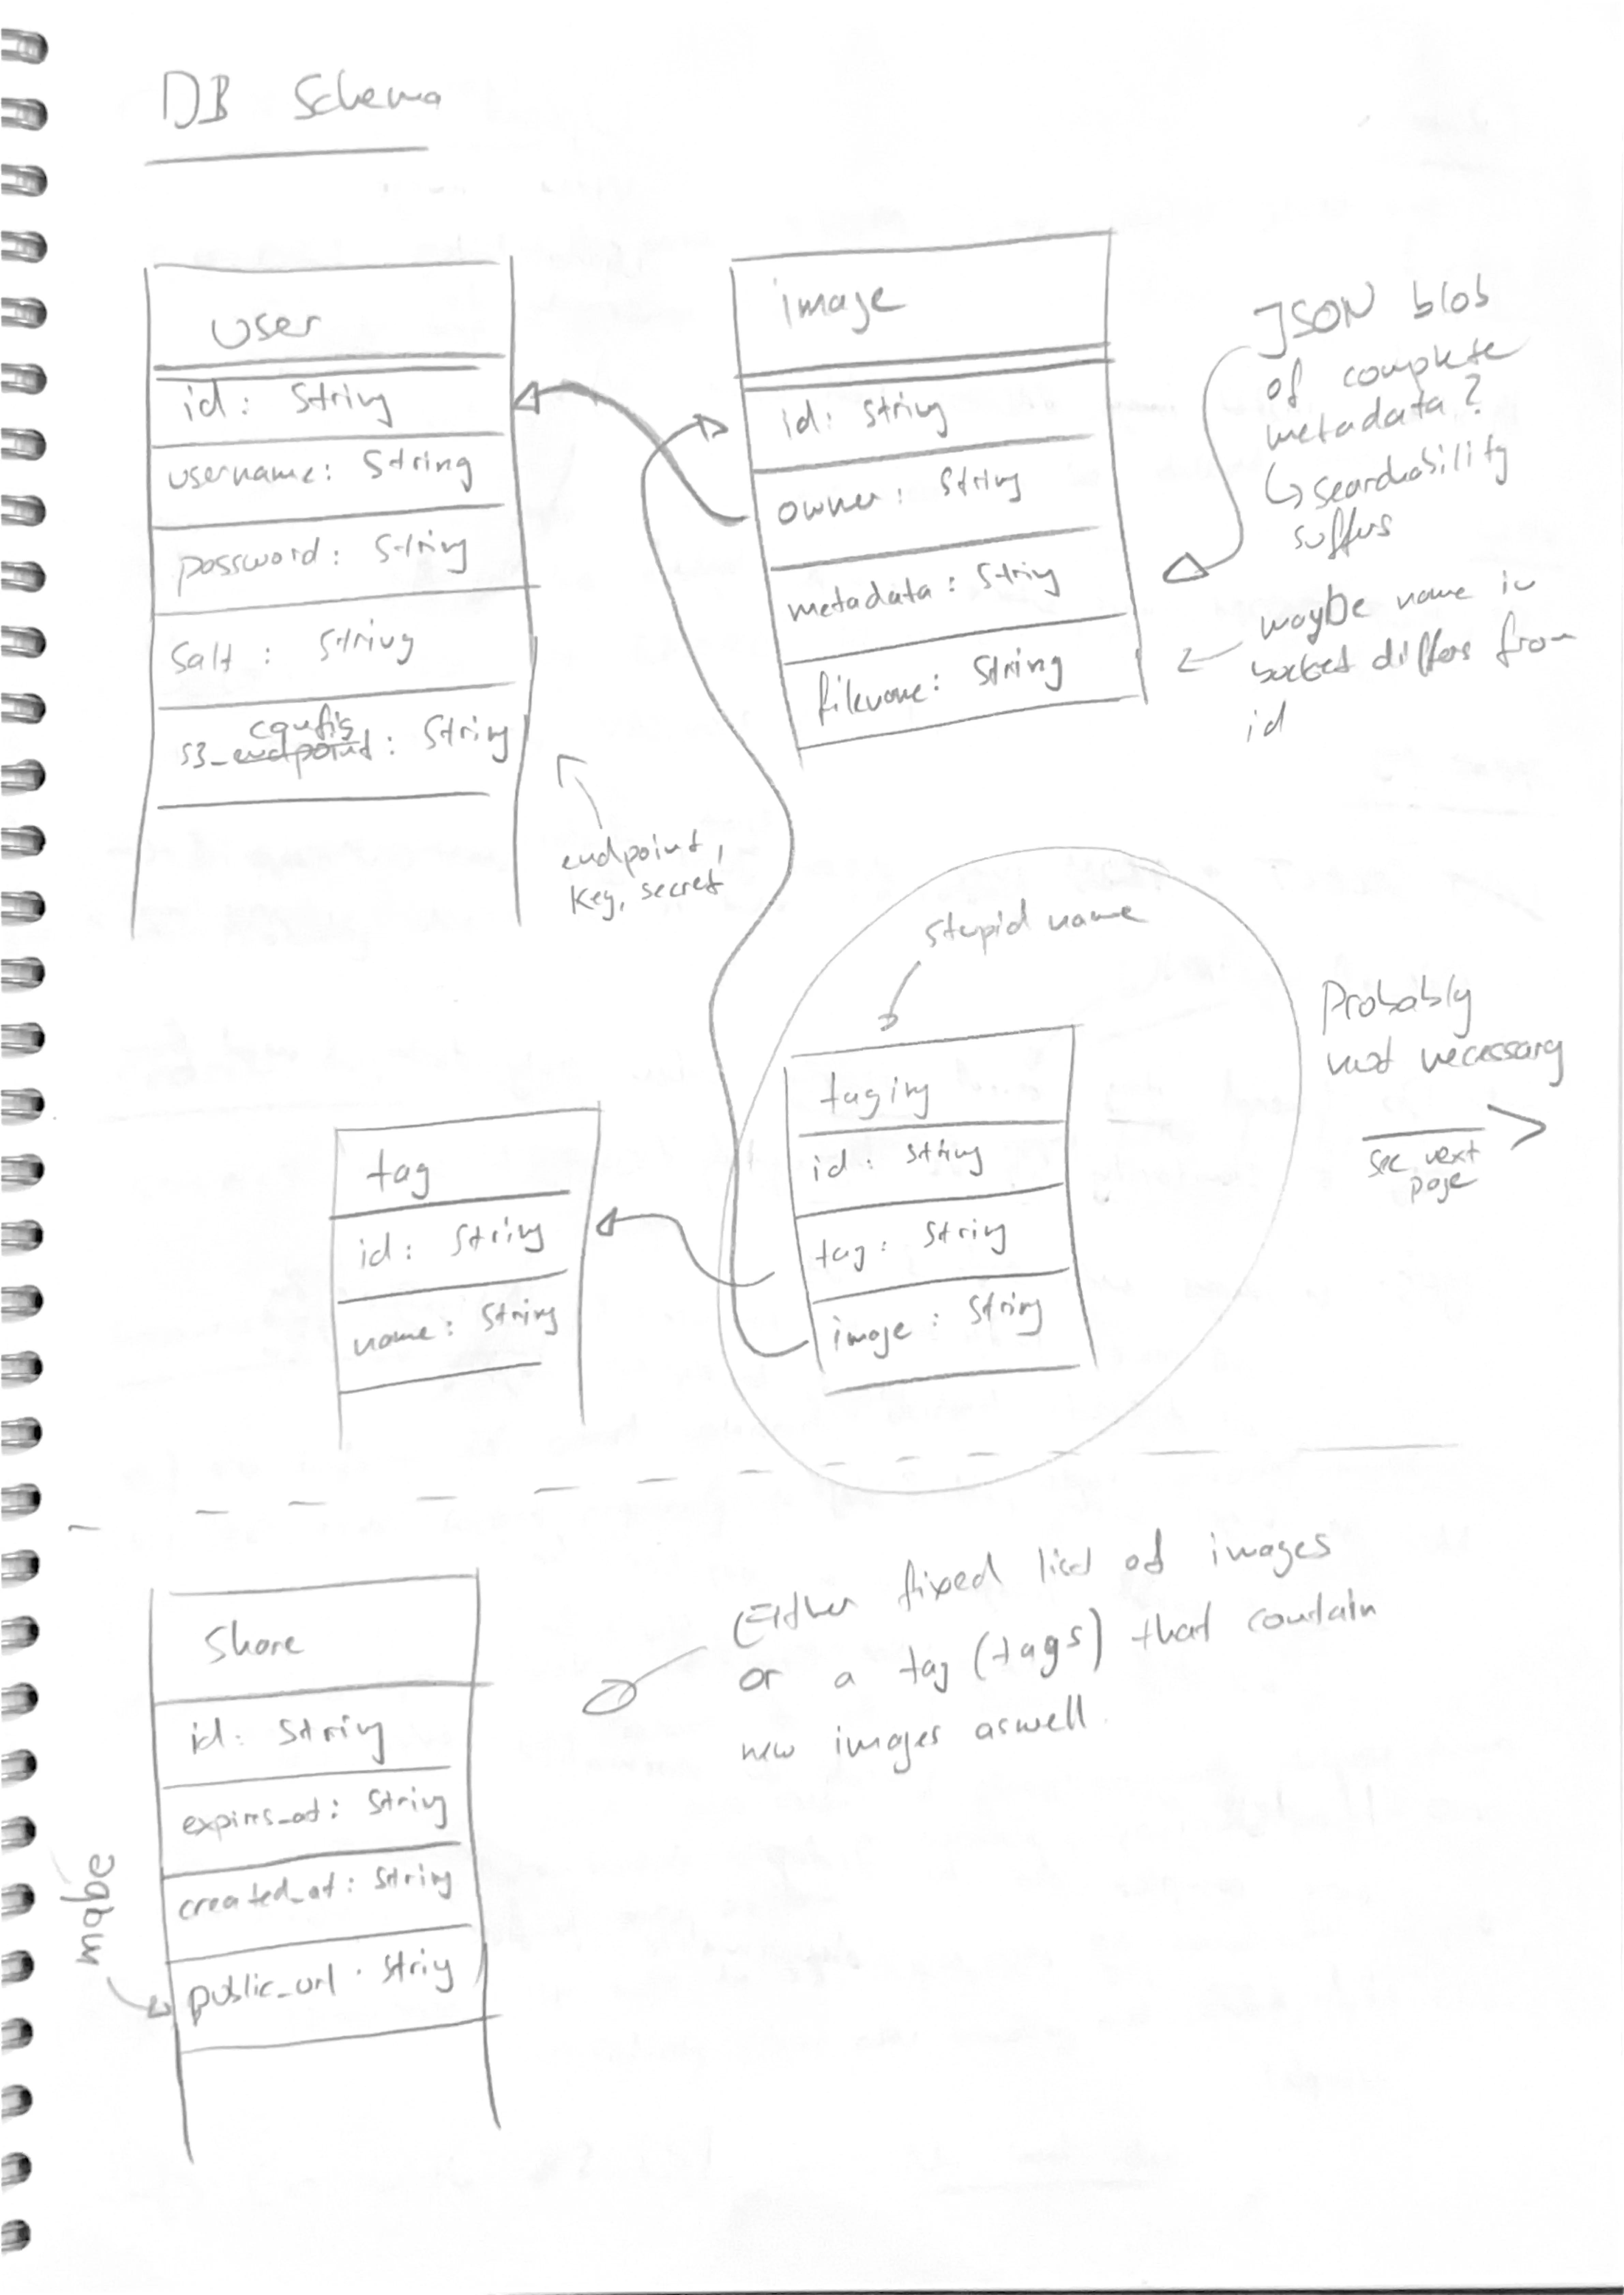 DB Schema
user
id: String
username: String
password: String
salt: String
config
s3_endpoint: String
endpoint,
key, secret
image
id: String
owner: String
metadata: String
filename: String
JSON blob
of complete
metadata?
↳ searchability
suffers
maybe name in
bucket differs from
id
stupid name
taging
id: String
tag: String
image: String
Probably
not necessary
see next
page
tag
id: String
name: String
Share
id: String
expires_at: String
created_at: String
public_url: String
maybe
Either fixed list of images
or a tag (tags) that contain
new images aswell.